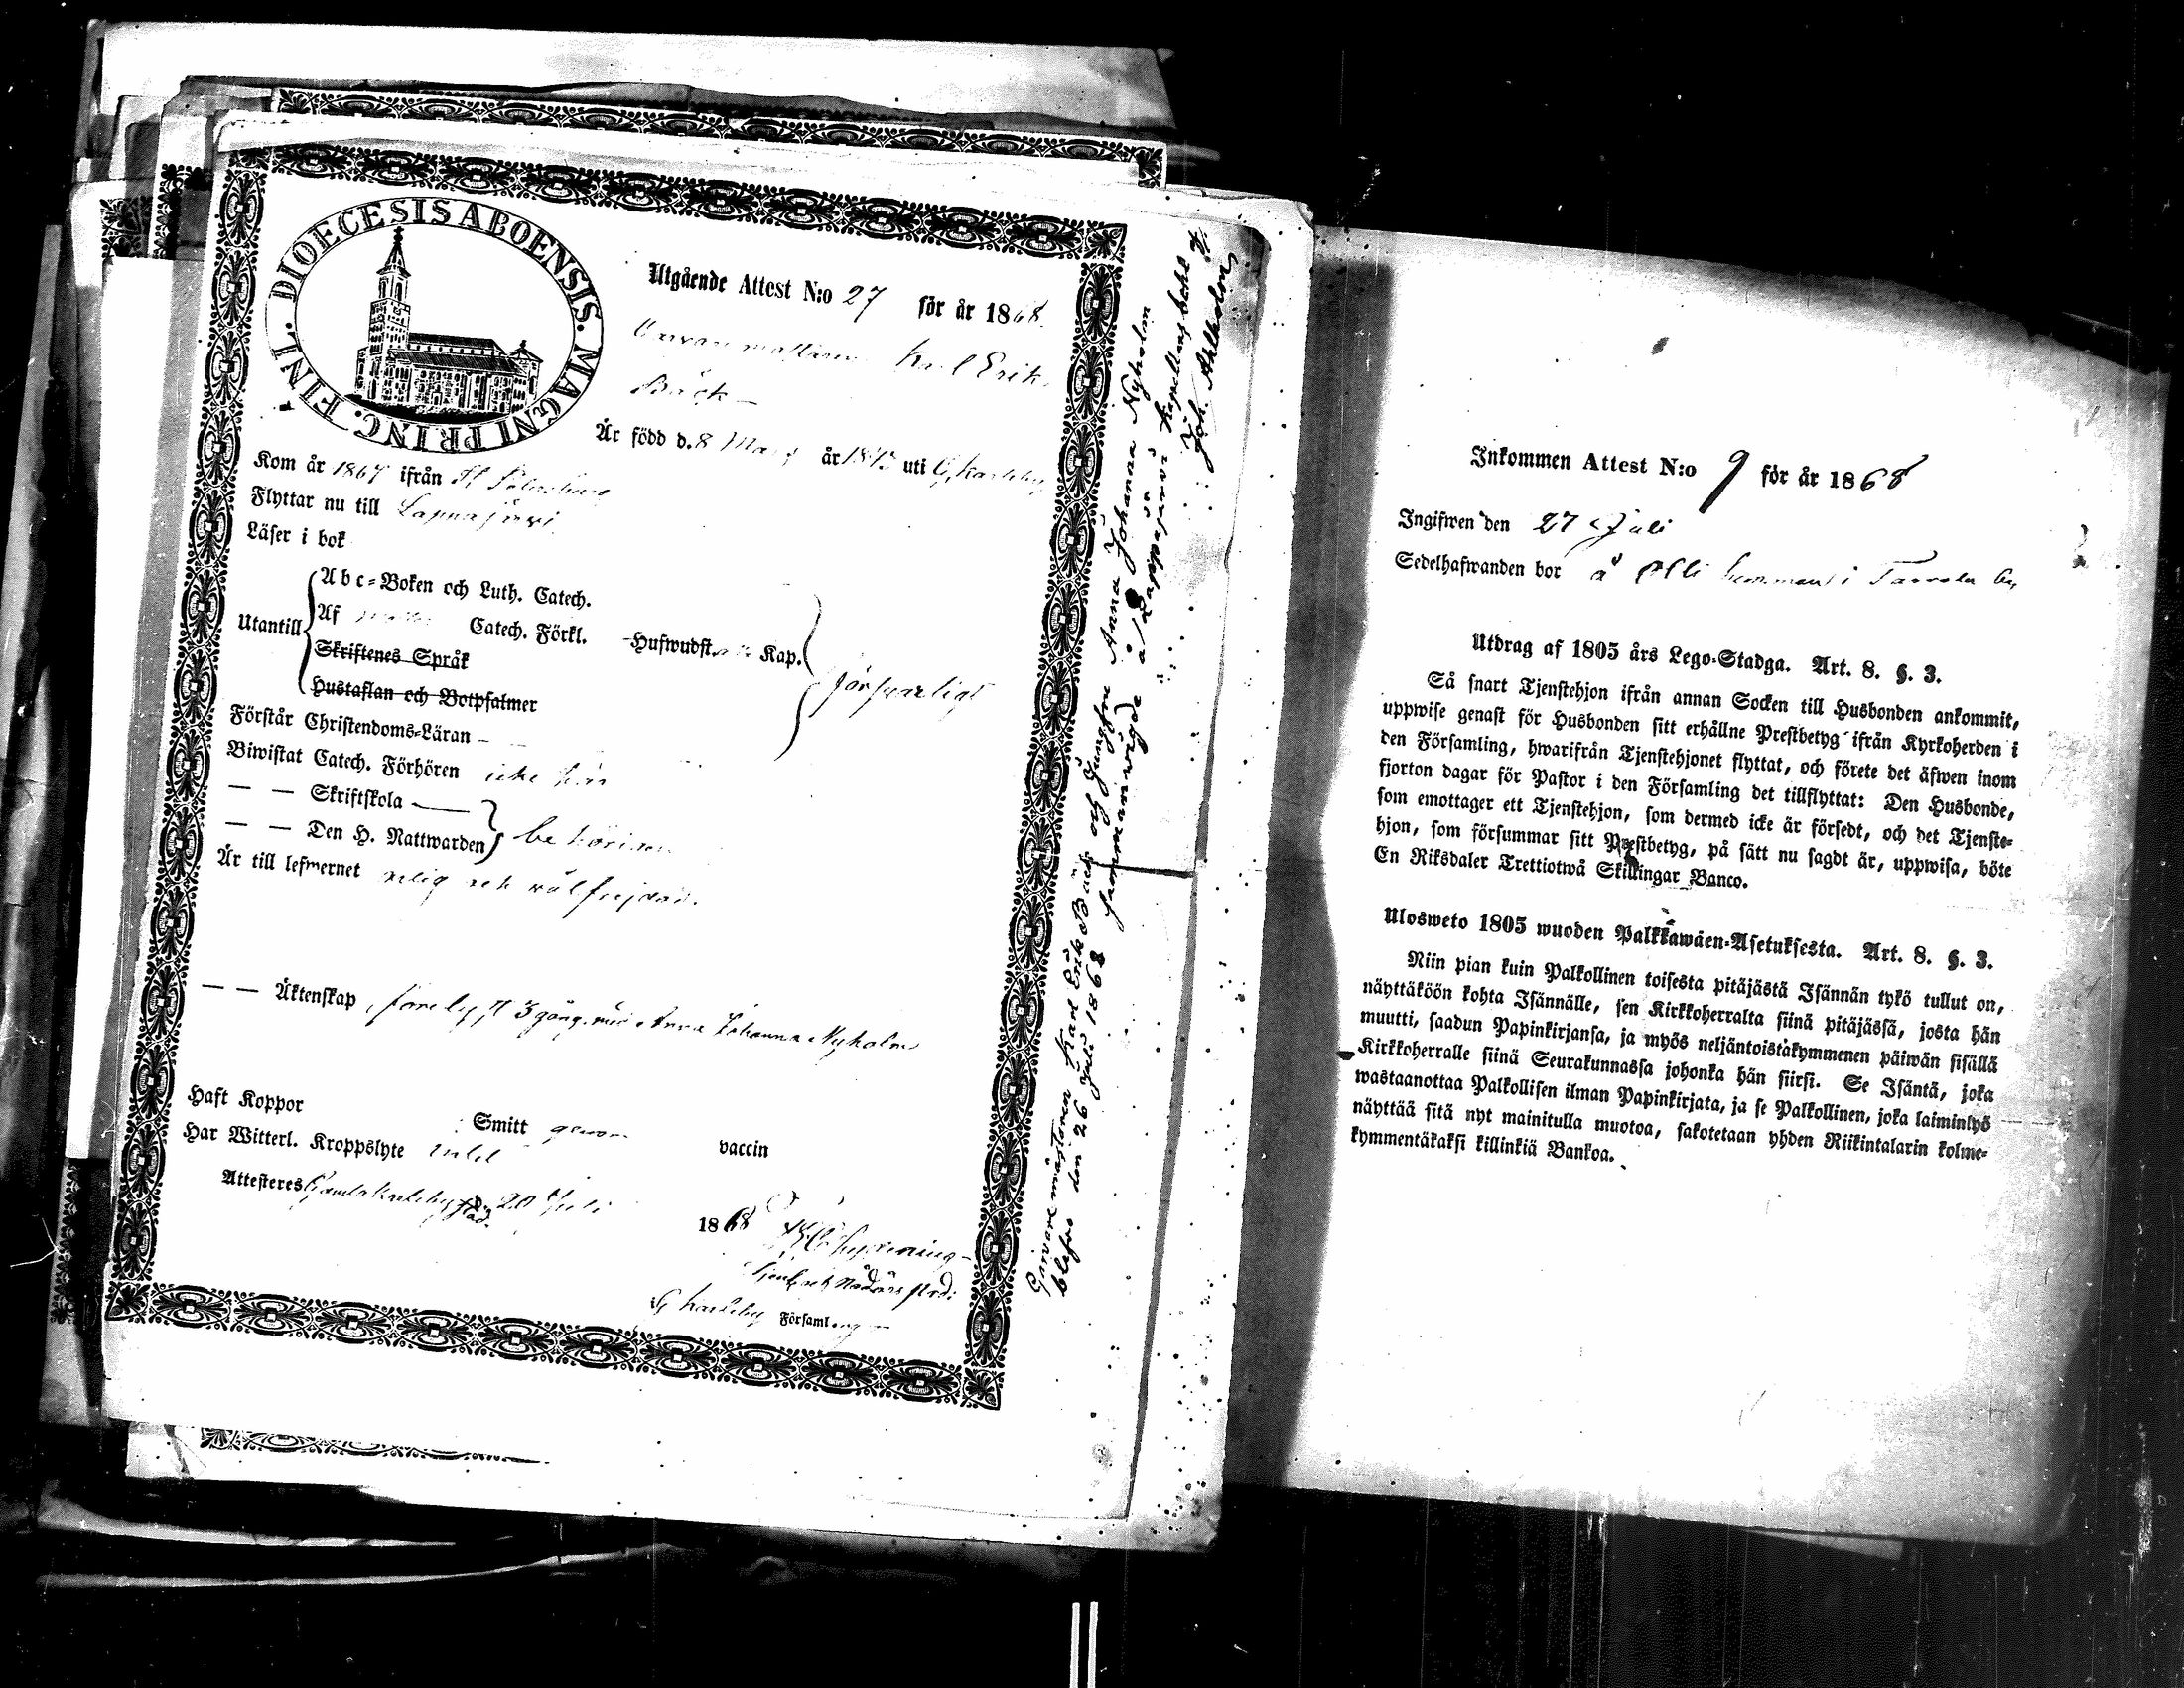 DIOECESIS ABOENSIS. MAGNI PRINC. FINL.
Utgående Attest N:o 27 för år 1868.
Karl Erik
Bäck
Är född d. 8 år 18 uti G. Karleby
Kom år 1867 ifrån St Petersburg
Flyttar nu till Lappajärvi
Läser i bok
Utantill
Abc-Boken och Luth. Catech.
Af Catech. Förkl. Hufwudst. Kap.
Skriftenes Språk
Hustaflan och Botpsalmer
försvarligt
Förstår Christendoms-Läran –
Biwistat Catech. Förhören icke här
— — Skriftskola —
— — Den H. Nattwarden
behörigen
Är till lefwernet ärlig och välfrejdad.
— — Äktenskap, förelyst 3 gång. med Anna Johanna Nyholm
Haft Koppor Smitt genom vaccin
Har Witterl. Kroppslyte intet
Attesteras Gamlakarleby stad. d. 20 Juli 1868
G Karleby Församling
Garfvaremästaren Karl Erik Bäck och Jungfrun Anna Johanna Nyholm
blefvo den 26 Juli 1868 sammanvigde i Lappajärvi
Kapellansbohl
Joh. Ahlholm
Inkommen Attest N:o 9 för år 1868
Ingifwen den 27 Juli
Sedelhafwanden bor å Olli hemman i by
Utdrag af 1805 års Lego-Stadga. Art. 8. §. 3.
Så snart Tjenstehjon ifrån annan Socken till Husbonden ankommit,
uppwise genast för Husbonden sitt erhållne Prestbetyg ifrån Kyrkoherden i
den Församling, hwarifrån Tjenstehjonet flyttat, och förete det äfwen inom
fjorton dagar för Pastor i den Församling det tillflyttat: Den Husbonde,
som emottager ett Tjenstehjon, som dermed icke är försedt, och det Tjenste-
hjon, som försummar sitt Prestbetyg, på sätt nu sagdt är, uppwisa, böte
En Riksdaler Trettiotwå Skillingar Banco.
Ulosweto 1805 wuoden Palkkawäen-Asetuksesta. Art. 8. §. 3.
Niin pian kuin Palkollinen toisesta pitäjästä Isännän tykö tullut on,
näyttäköön kohta Isännälle, sen Kirkkoherralta siinä pitäjässä, josta hän
muutti, saadun Papinkirjansa, ja myös neljäntoistakymmenen päiwän sisällä
Kirkkoherralle siinä Seurakunnassa johonka hän siirsi. Se Isäntä, joka
wastaanottaa Palkollisen ilman Papinkirjata, ja se Palkollinen, joka laiminlyö
näyttää sitä nyt mainitulla muotoa, sakotetaan yhden Riikintalarin kolme-
kymmentäkaksi killinkiä Bankoa.